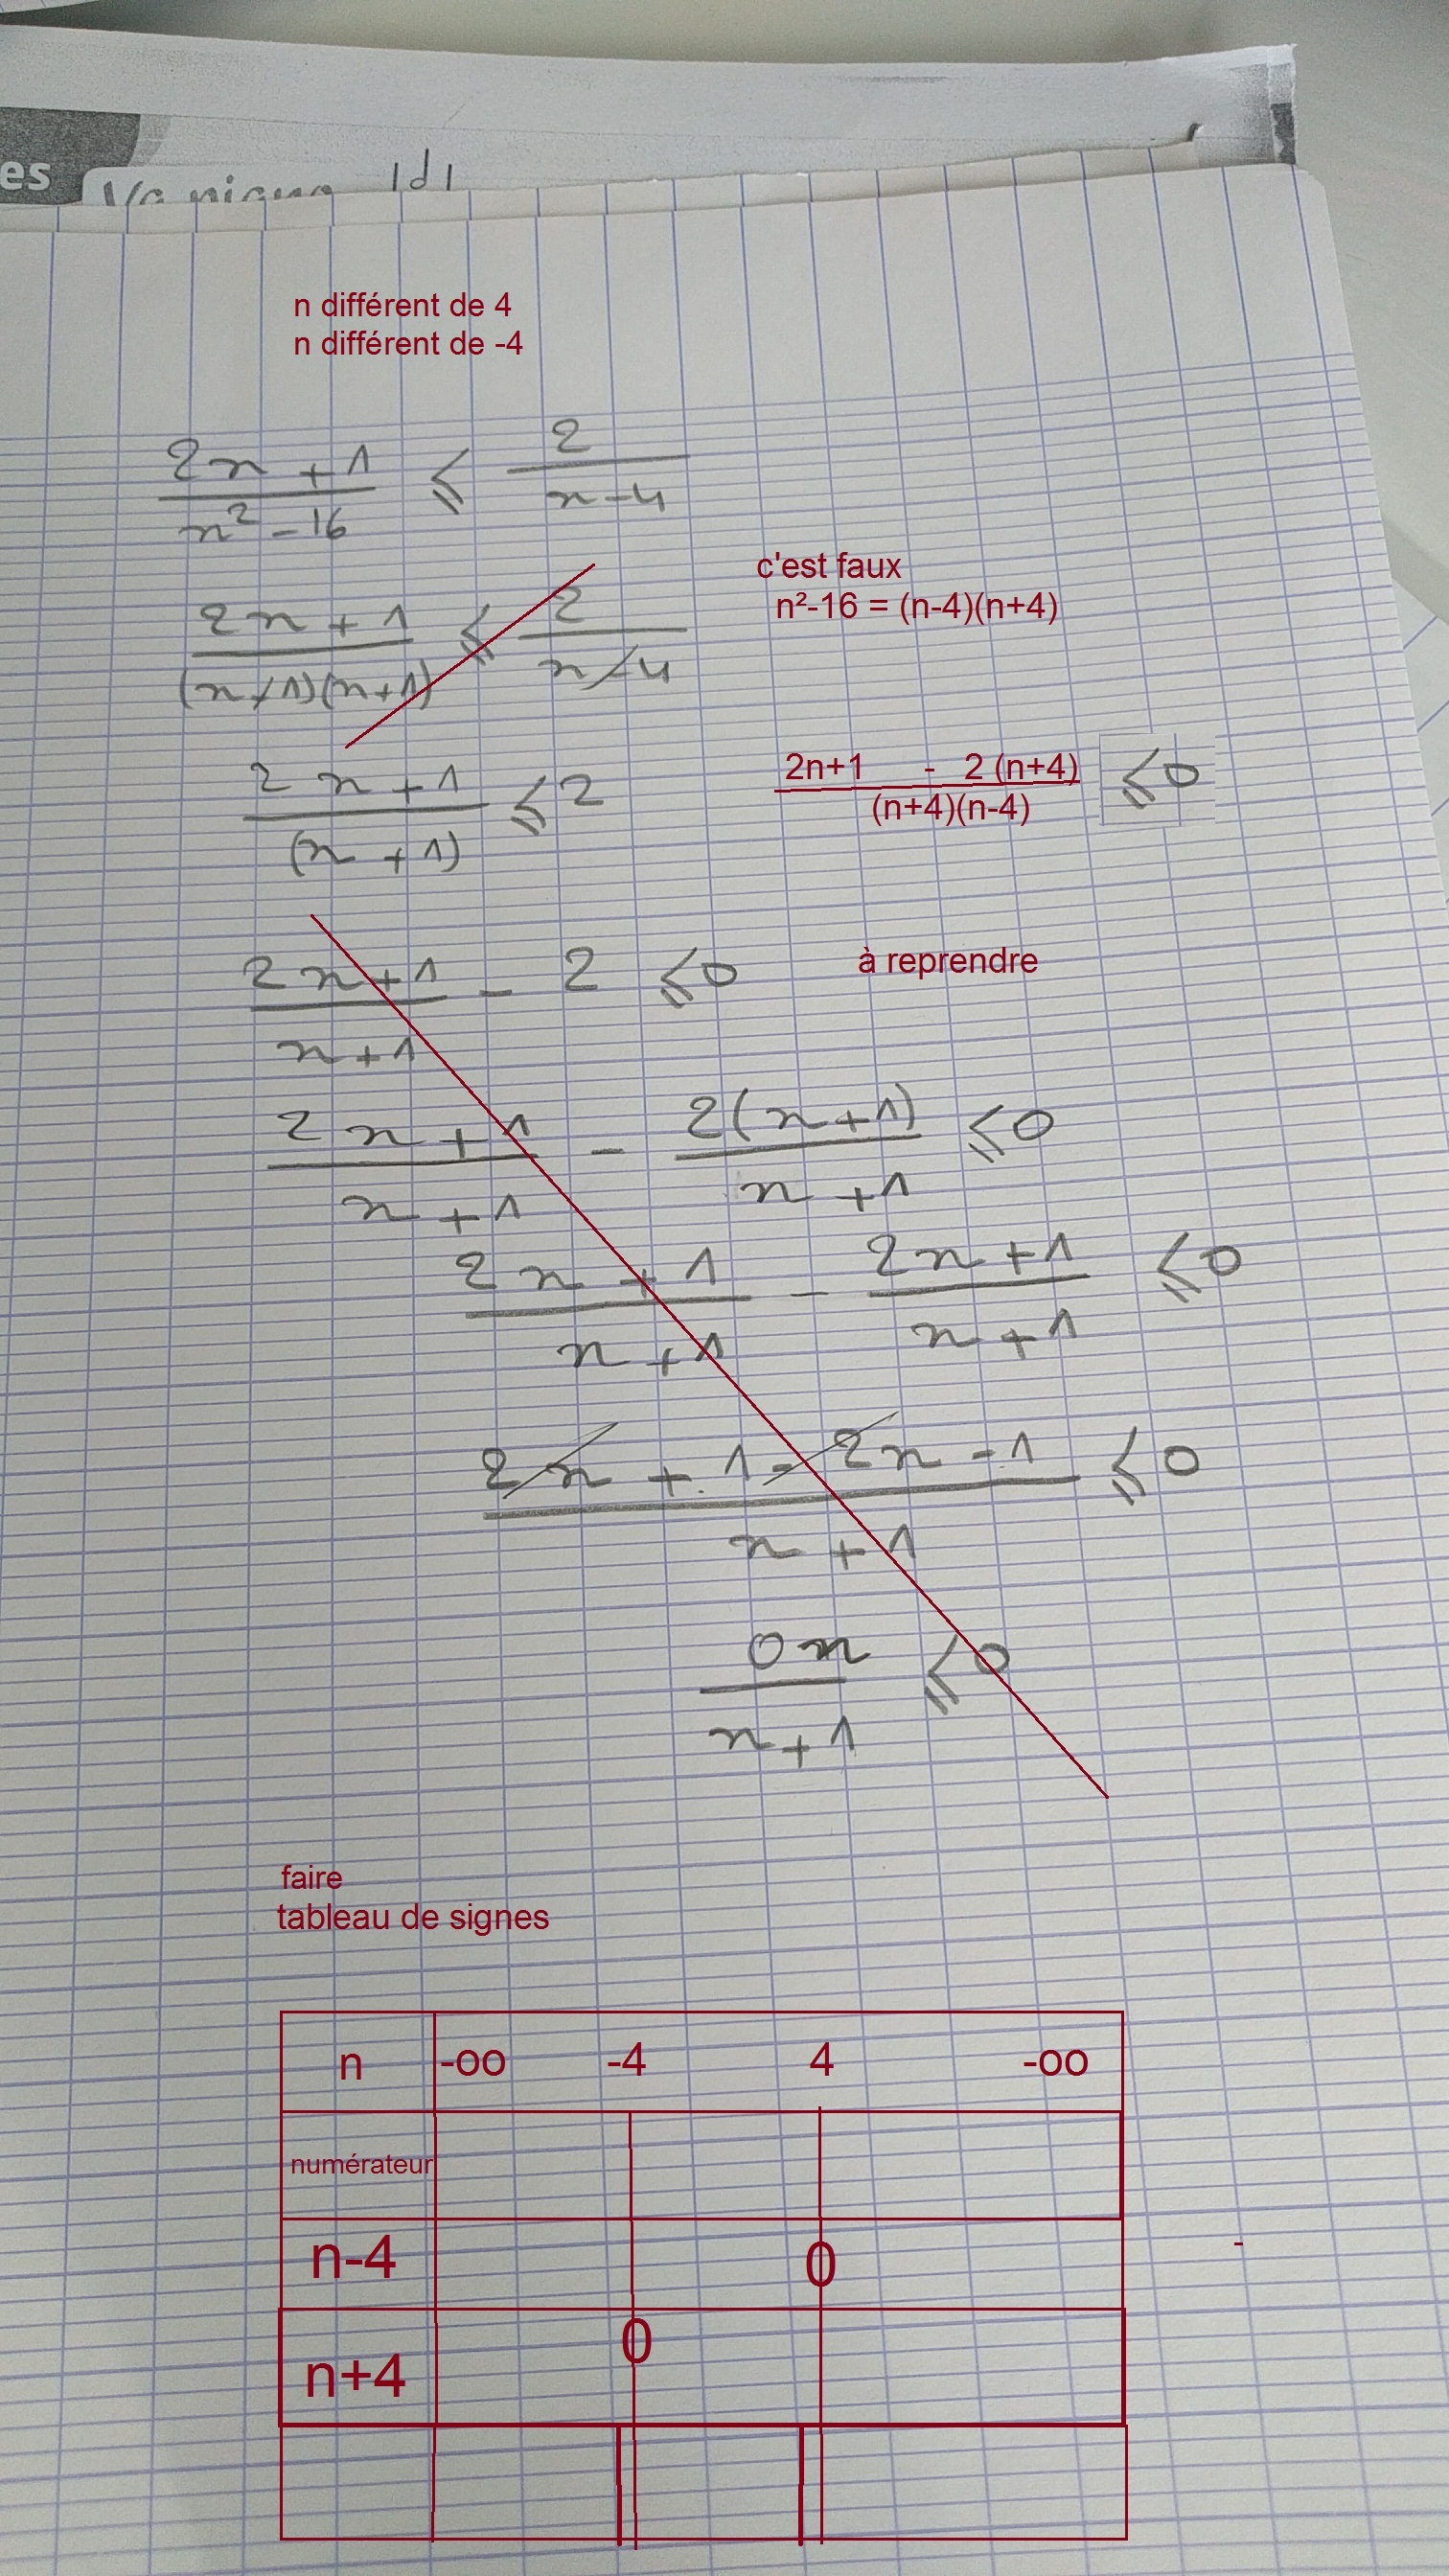 es
1d1
n différent de 4
n différent de -4
2n + 1 / n² - 16 ⩽ 2 / n - 4
c'est faux
n²-16 = (n-4)(n+4)
2n + 1 / (n - 1)(n + 1) ⩽ 2 / n - 4
2n + 1 / (n + 1) ⩽ 2
2n+1 - 2 (n+4) / (n+4)(n-4) ⩽ 0
2n + 1 / n + 1 - 2 ⩽ 0
à reprendre
2n + 1 / n + 1 - 2(n + 1) / n + 1 ⩽ 0
2n + 1 / n + 1 - 2n + 1 / n + 1 ⩽ 0
2n + 1 - 2n - 1 / n + 1 ⩽ 0
0n / n + 1 ⩽ 0
faire
tableau de signes
n -oo -4 4 -oo
numérateur
n-4 0
-
n+4 0